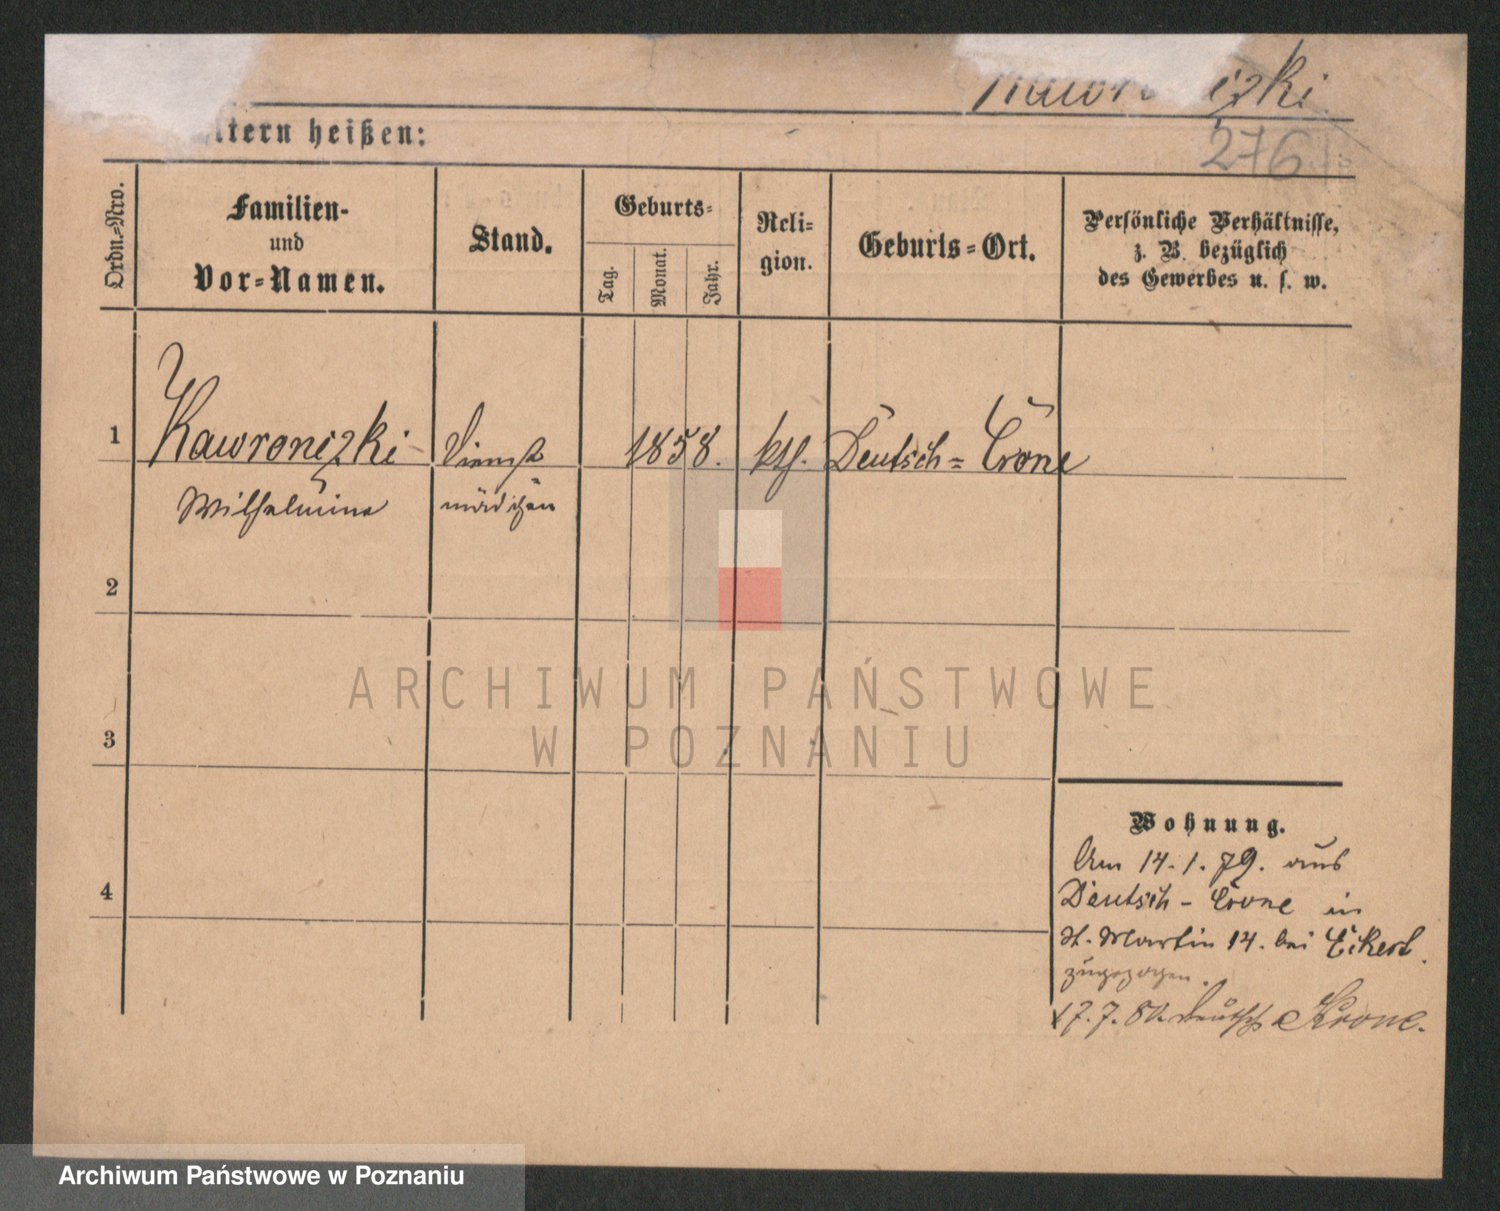 276
ltern heißen:
Ordn.-Nro.
Familien-
und
Vor-Namen.
Stand.
Geburts-
Tag.
Monat.
Jahr.
Reli-
gion.
Geburts-Ort.
Persönliche Verhältnisse,
z. B. bezüglich
des Gewerbes u. s. w.
1
Kawronizki
Wilhelmine
Dienst
mädchen
1858.
kth.
Deutsch-Crone
2
3
4
Wohnung.
Am 14.1.79. aus
Deutsch-Crone in
St. Martin 14. bei Eckert
zugezogen.
17.7.80. Deutsch Krone.
ARCHIWUM PAŃSTWOWE
W POZNANIU
Archiwum Państwowe w Poznaniu